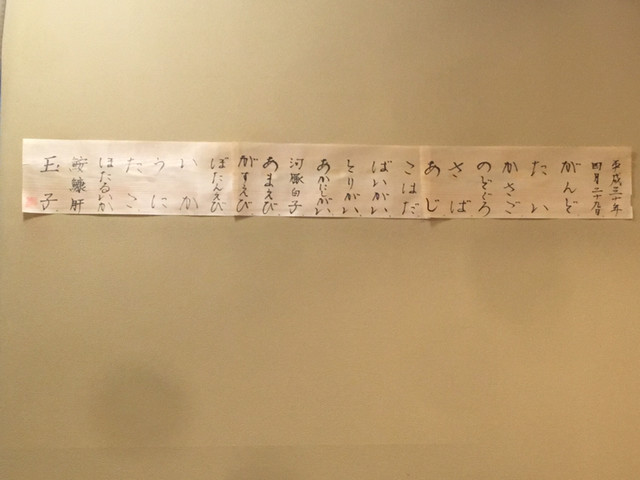 平成三十年
四月二十九日
がんど
たい
かさご
のどぐろ
さば
あじ
こはだ
ばいがい
とりがい
あかにしがい
河豚白子
あまえび
がすえび
ぼたんえび
いか
うに
たこ
ほたるいか
鮟鱇肝
玉子